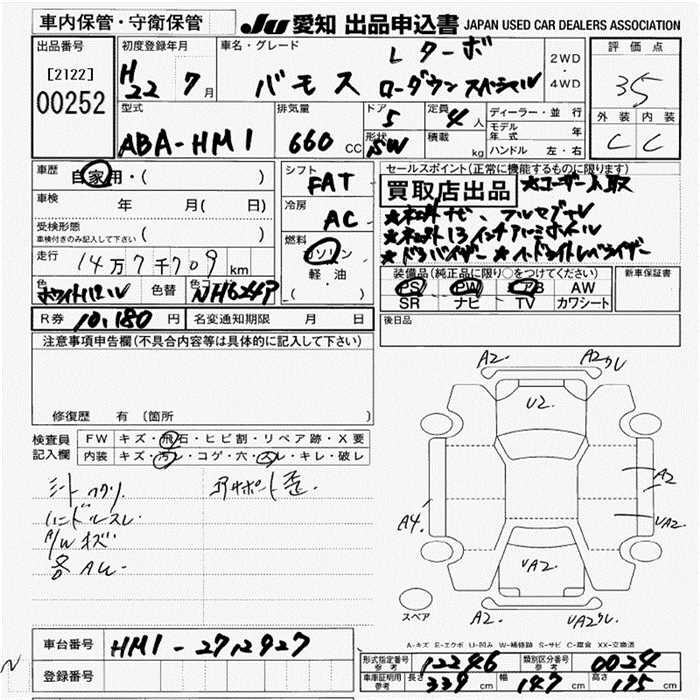 車内保管・守衛保管
JU 愛知 出品申込書 JAPAN USED CAR DEALERS ASSOCIATION
出品番号
[2122]
00252
初度登録年月
H22 7月
車名・グレード
Lターボ
バモス ローダウンスペシャル
2WD・4WD
評価点
35
外装 内装
C C
型式
ABA-HM1
排気量
660 CC
ドア
5
形状
SW
定員
4人
積載
kg
ディーラー・並行
モデル年式 年
ハンドル 左・右
車歴
自家用・( )
車検
年 月( 日)
受検形態
車検付きのみ記入して下さい ( )
走行
14万7千709 km
色
ホワイトパール
色替
シフト
FAT
冷房
AC
燃料
ガソリン
軽・油
・( )
セールスポイント(正常に機能するものに限ります)
買取店出品
★ユーザー買取
★社外ナビ、フルセグTV
★社外13インチアルミホイール
★ドアバイザー ★ヘッドライトレベライザー
装備品(純正品に限り○をつけてください)
PS PW AB AW
SR ナビ TV カワシート
新車保証書
後日品
R券 10,180円
名変通知期限 月 日
注意事項申告欄(不具合内容等は具体的に記入して下さい)
修復歴 有(箇所
検査員記入欄
FW キズ・飛石・ヒビ割・リペア跡・X要
内装 キズ・汚レ・コゲ・穴・スレ・キレ・破レ
ハンドルスレ
A/Wキズ
A2. A2
U2.
A2
A4.
UA2.
UA2.
A2. UA2
スペア
A-キズ E-エクボ U-凹み W-補修跡 S-サビ C-腐食 XX-交換済
車台番号
HM1-2712927
登録番号
型式指定番号 参考 12246
類別区分番号 参考 0024
車庫証明 参考 長さ 339 cm 幅 147 cm 高さ 175 cm
N